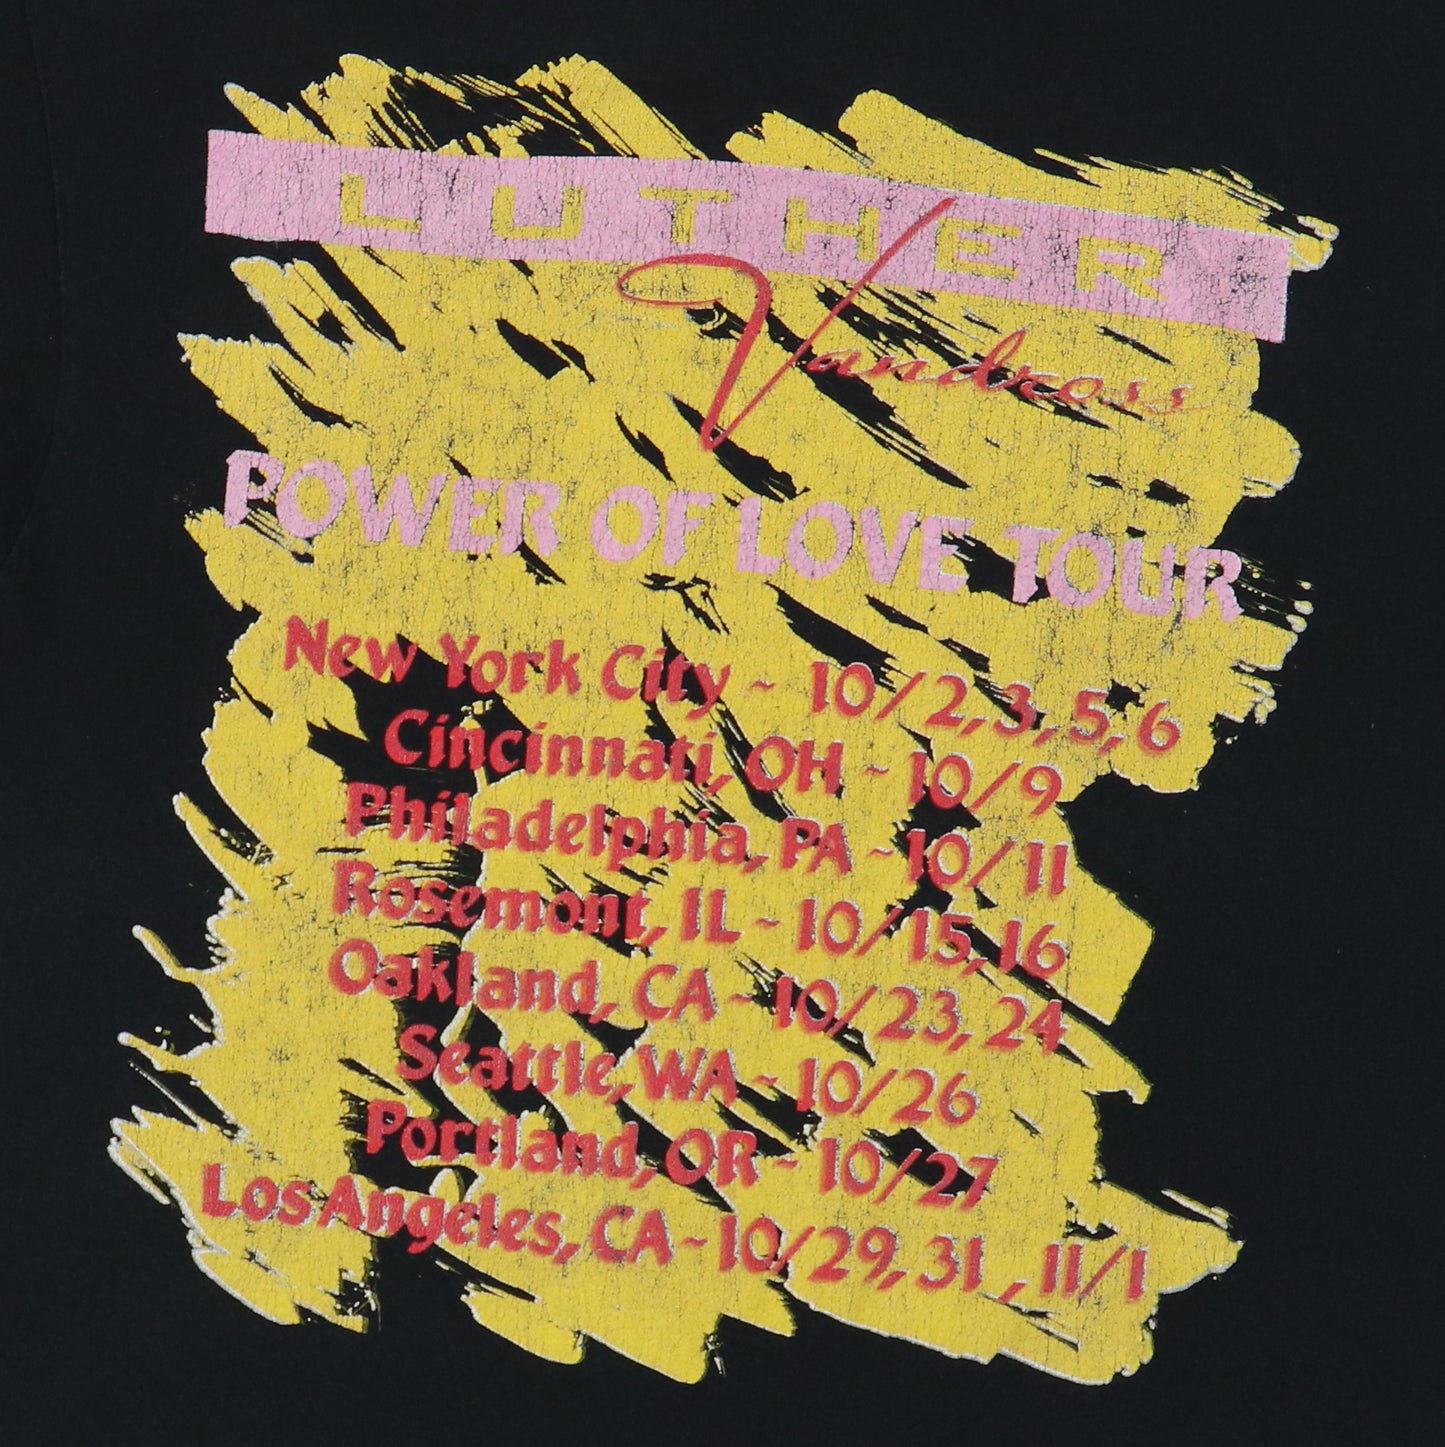 LUTHER
Vandross
POWER OF LOVE TOUR
New York City ~ 10/2, 3, 5, 6
Cincinnati, OH ~ 10/9
Philadelphia, PA ~ 10/11
Rosemont, IL ~ 10/15, 16
Oakland, CA ~ 10/23, 24
Seattle, WA ~ 10/26
Portland, OR ~ 10/27
Los Angeles, CA ~ 10/29, 31, 11/1